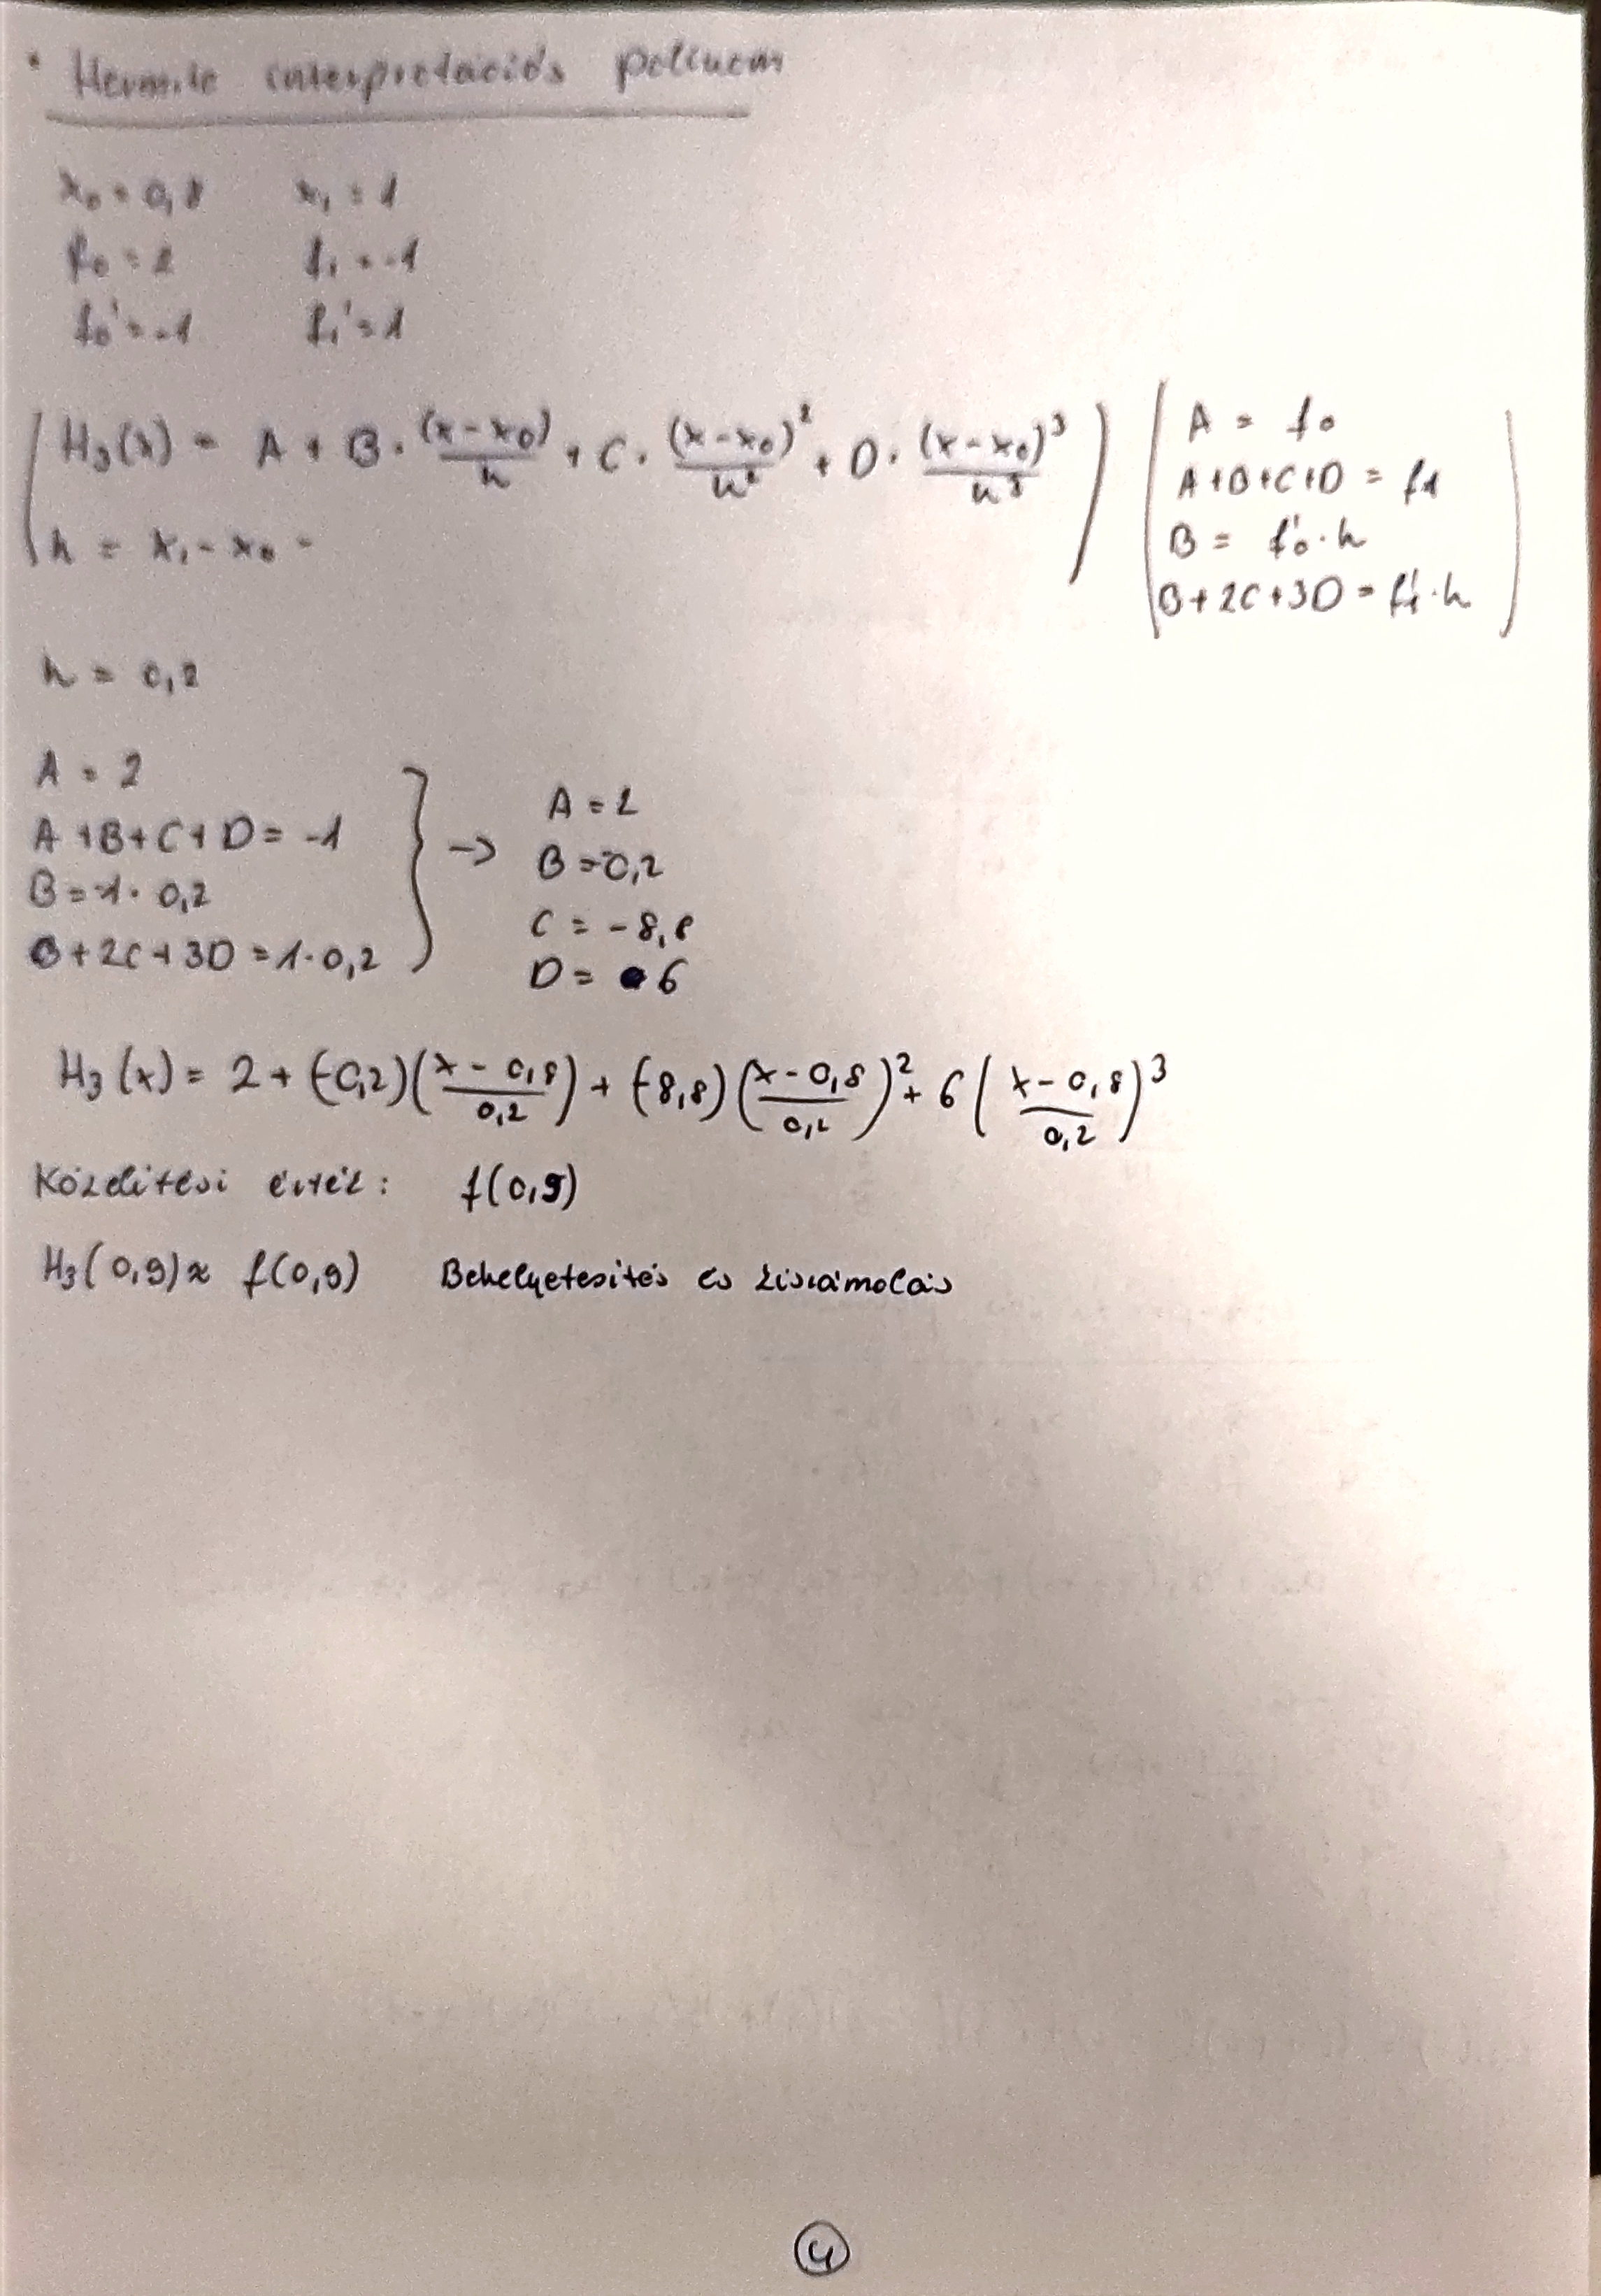 • Hermite interpretációs polinom
x₀ = 0,8 x₁ = 1
f₀ = 2 f₁ = -1
f₀' = -1 f₁' = 1
H₃(x) = A + B · (x-x₀)/h + C · (x-x₀)²/h² + D · (x-x₀)³/h³
h = x₁ - x₀ =
A = f₀
A+B+C+D = f₁
B = f₀'·h
B+2C+3D = f₁'·h
h = 0,2
A = 2
A+B+C+D = -1
B = -1 · 0,2
B+2C+3D = 1·0,2
→
A = 2
B = -0,2
C = -8,8
D = 6
H₃(x) = 2 + (-0,2)((x-0,8)/0,2) + (-8,8)((x-0,8)/0,2)² + 6((x-0,8)/0,2)³
Közelítési érték: f(0,9)
H₃(0,9) ≈ f(0,9) Behelyetesítés és kiszámolás
4